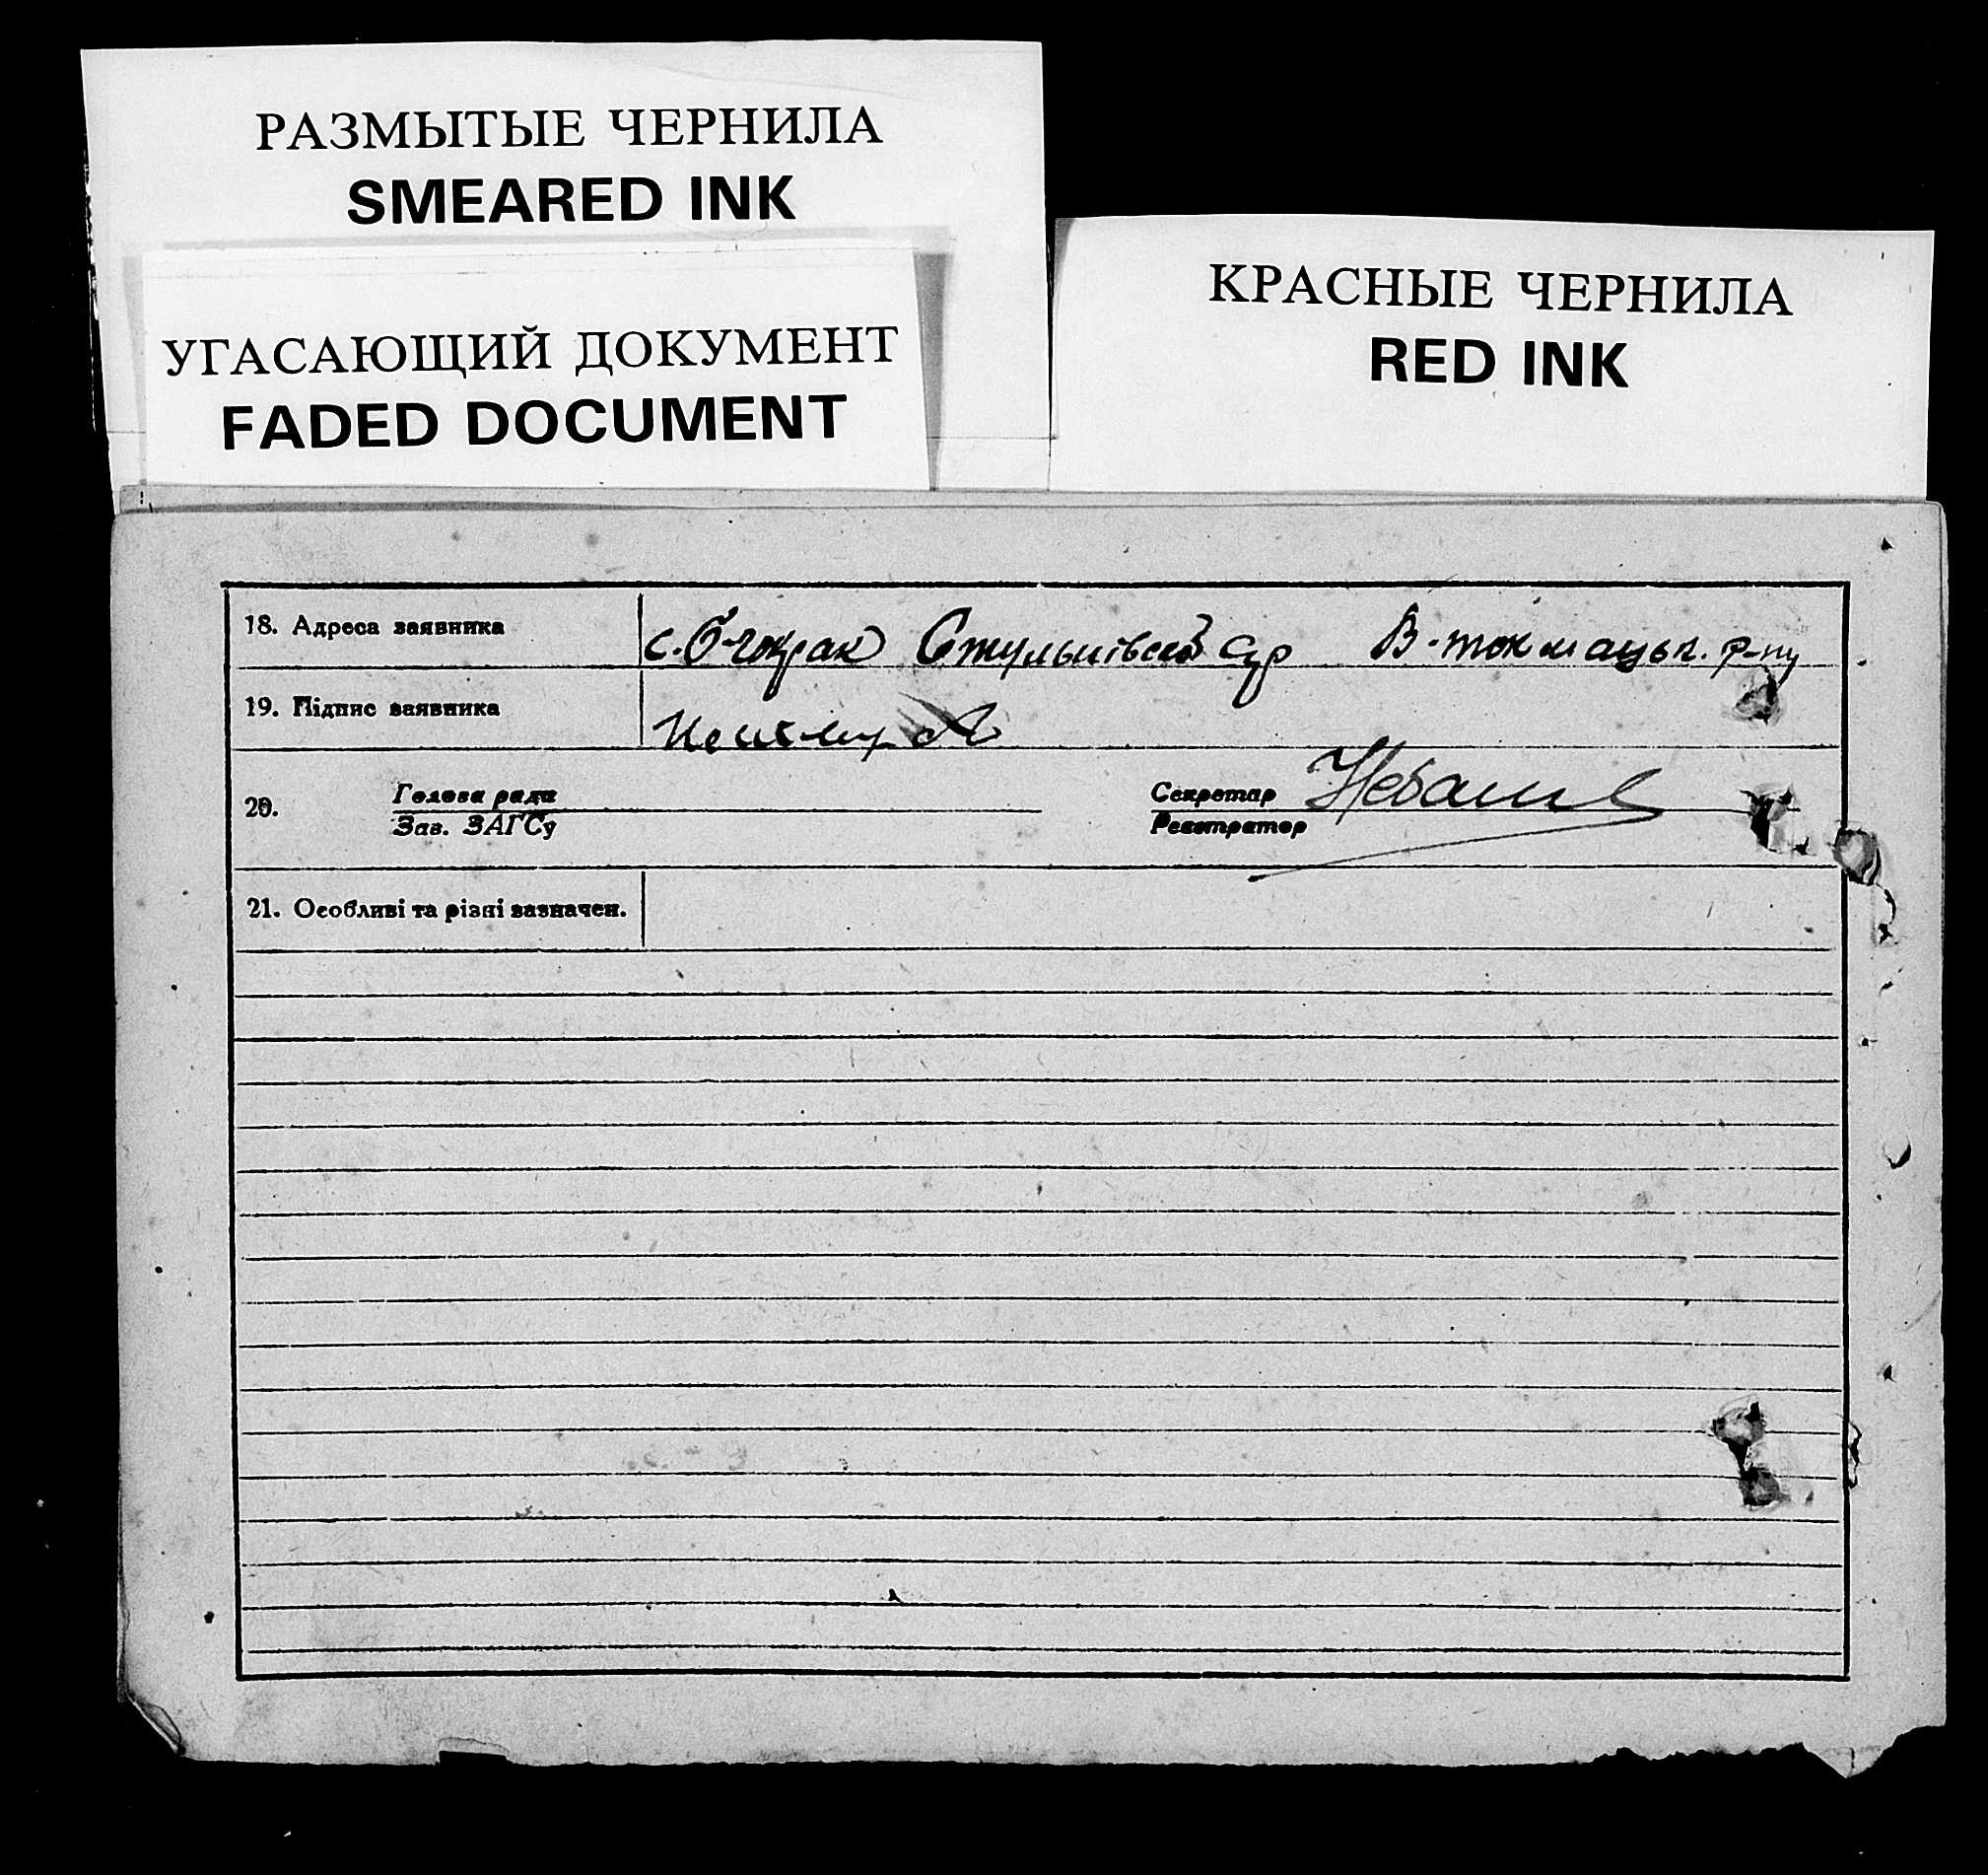 РАЗМЫТЫЕ ЧЕРНИЛА
SMEARED INK
УГАСАЮЩИЙ ДОКУМЕНТ
FADED DOCUMENT
КРАСНЫЕ ЧЕРНИЛА
RED INK
18. Адреса заявника с. В-ток мацьк. р-ну
19. Підпис заявника
20. Голова ради Секретар
Зав. ЗАГСу Реєстратор
21. Особливі та різні зазначен.